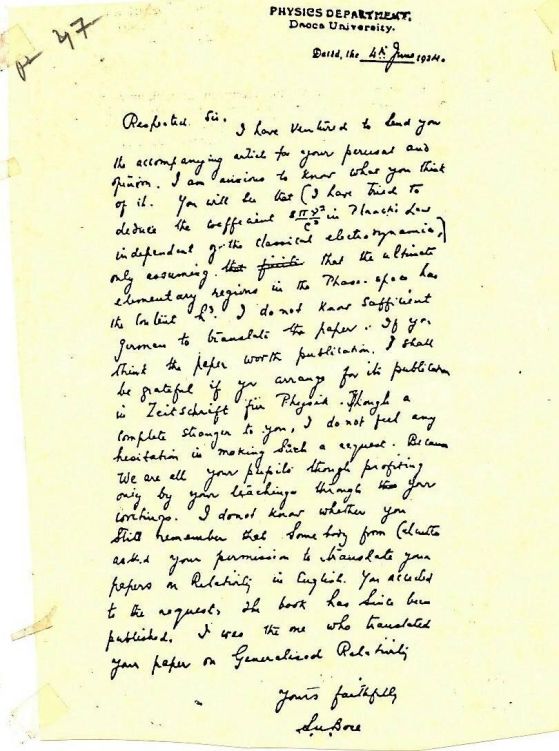 PHYSICS DEPARTMENT.
Dacca University.
Dated, the 4th June 1924.
Respected Sir,
I have ventured to send you
the accompanying article for your perusal and
opinion. I am anxious to know what you think
of it. You will see that (I have tried to
deduce the coefficient 8πν²/c³ in Planck's Law
independent of the classical electrodynamics)
only assuming that the ultimate
elementary regions in the Phase-space has
the content h³. I do not know sufficient
german to translate the paper. If you
think the paper worth publication, I shall
be grateful if you arrange for its publication
in Zeitschrift für Physik. Though a
complete stranger to you, I do not feel any
hesitation in making such a request. Because
we are all your pupils though profiting
only by your teachings through your
writings. I donot know whether you
still remember that somebody from Calcutta
asked your permission to translate your
papers on Relativity in English. You acceded
to the request. The book has since been
published. I was the one who translated
your paper on Generalised Relativity
Yours faithfully
S.N. Bose